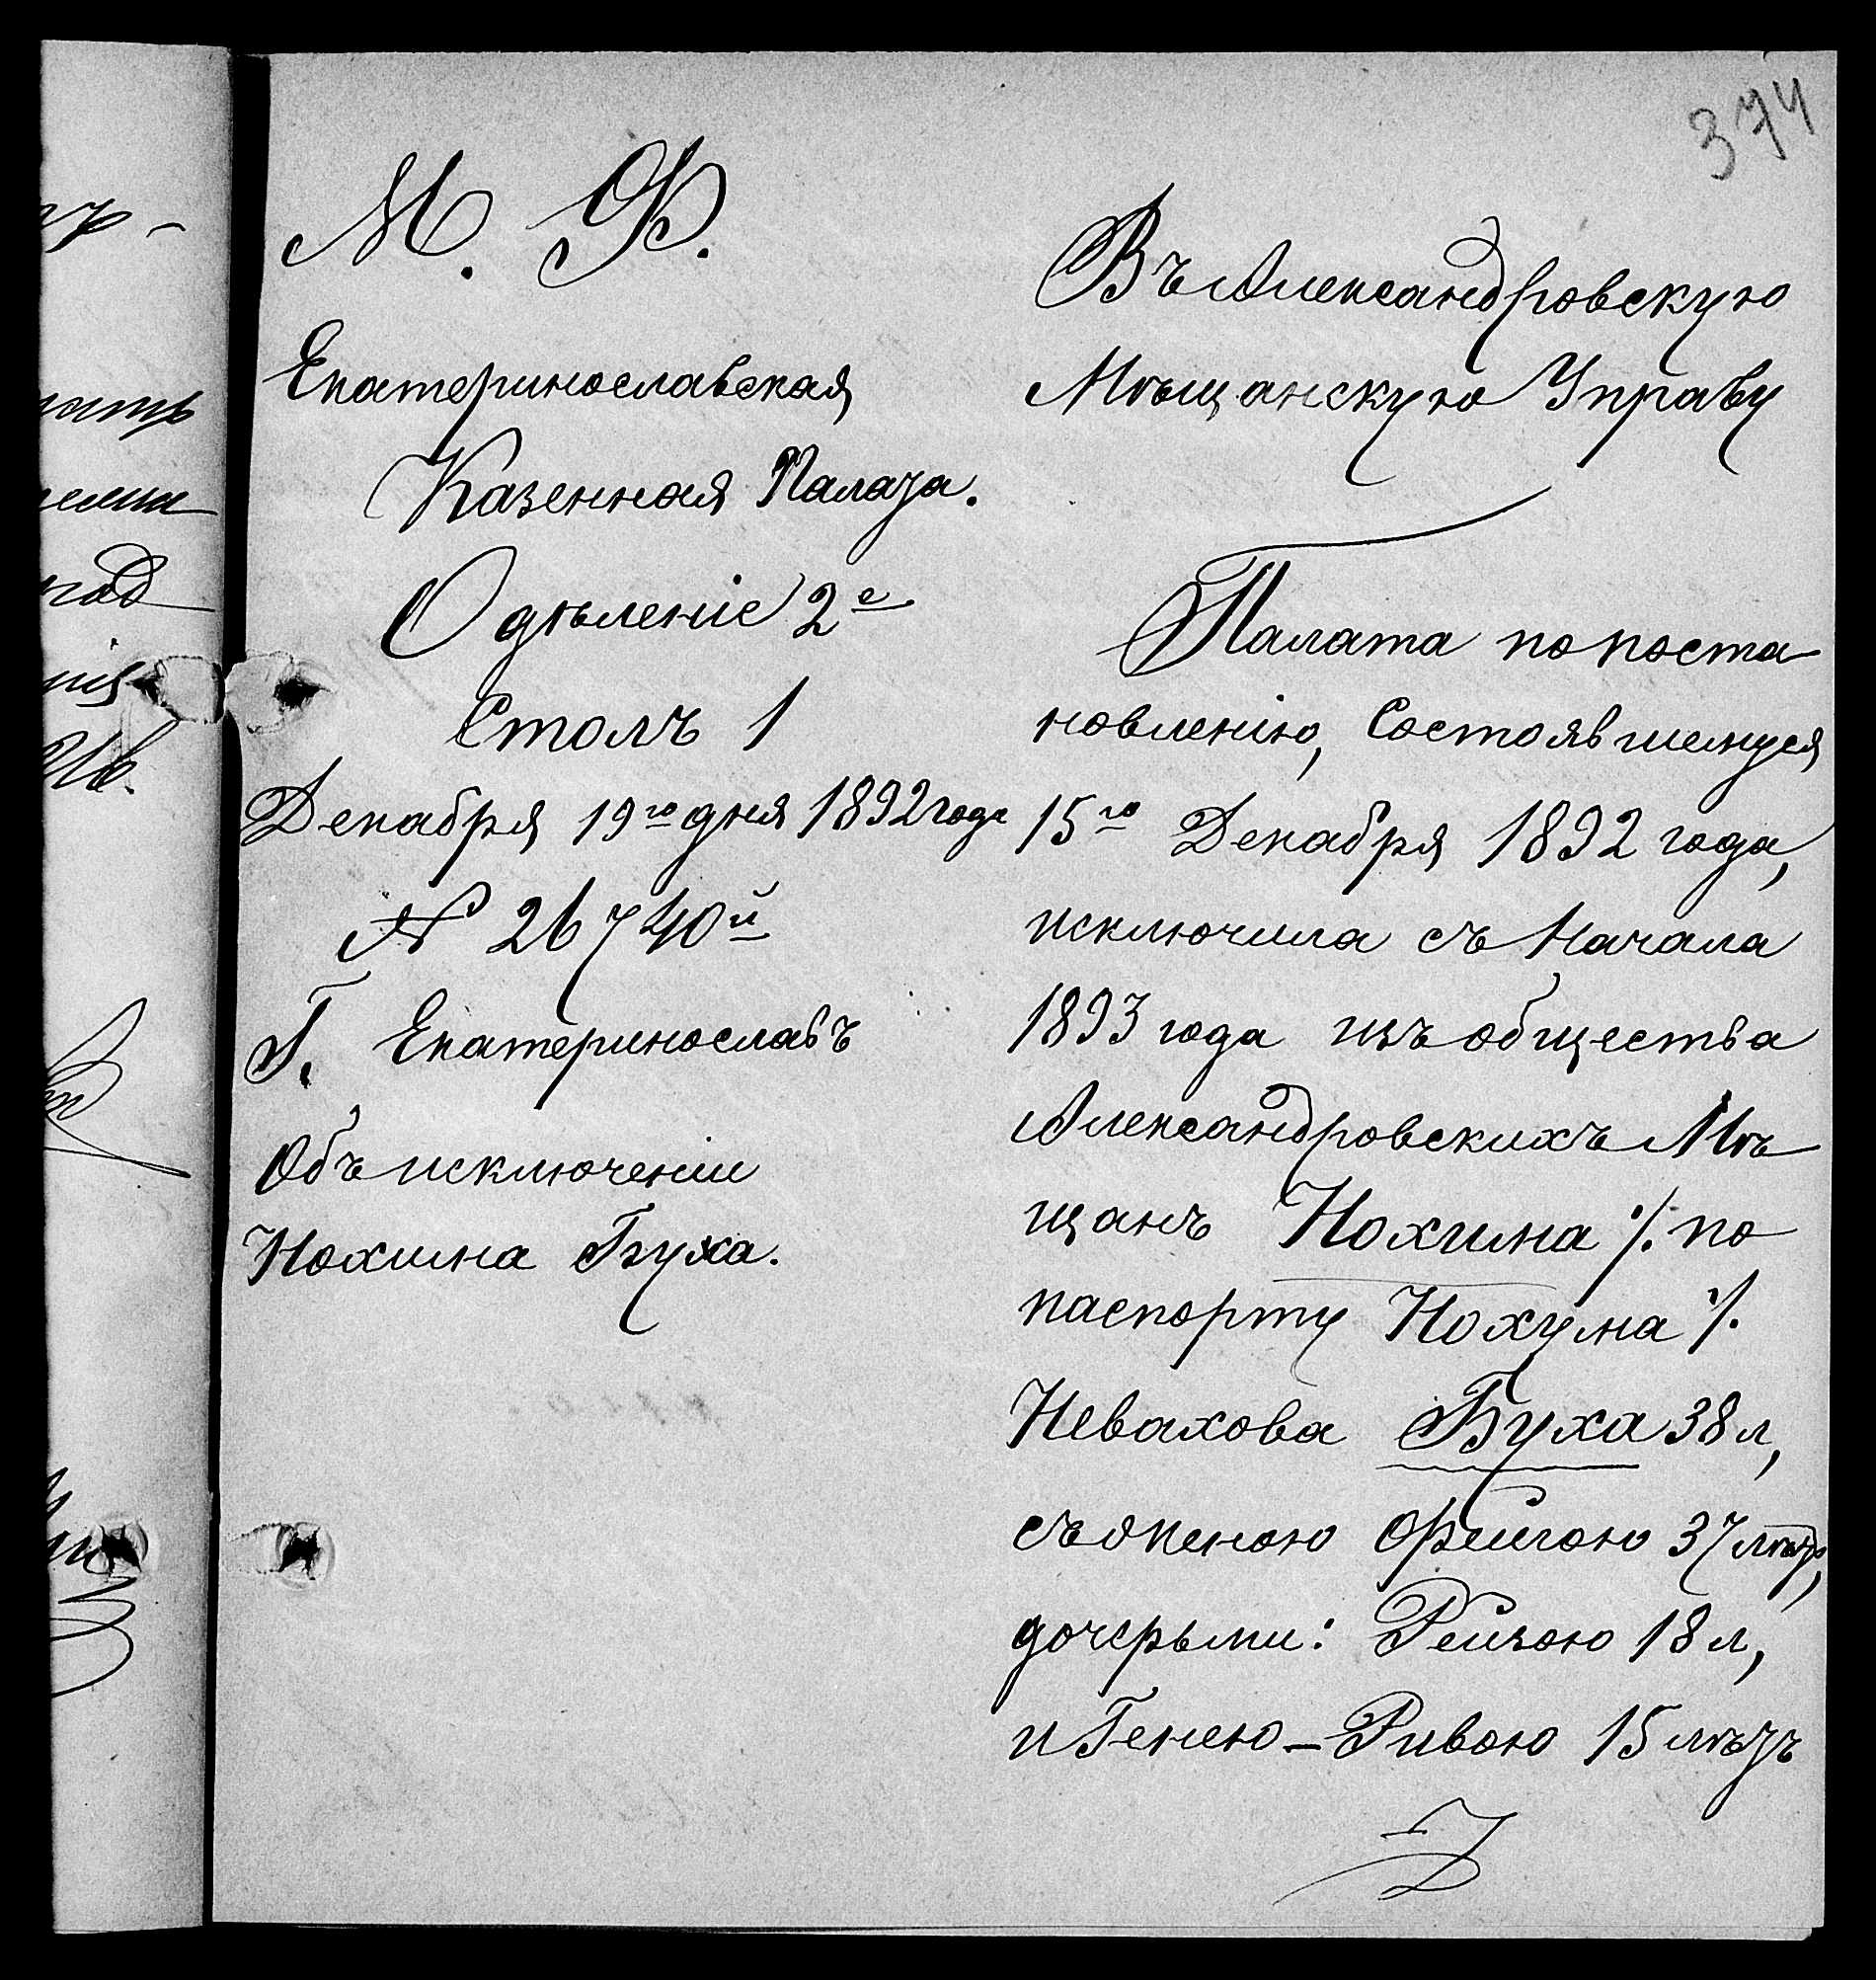 374
М. Ф.
Екатеринославская
Казенная Палата.
Отдѣленіе 2е
Столъ 1
Декабря 19го дня 1892 года
№ 26740й
Г. Екатеринославъ
Объ исключеніи
Нохима Буха.
Въ Александровскую
Мѣщанскую Управу
Палата по поста
новленію, Состоявшемуся
15го Декабря 1892 года,
исключила съ Начала
1893 года изъ общества
Александровскихъ Мѣ
щанъ Нохима ./. по
паспорту Нохума ./.
Невахова Буха 38 л,
съ женою Фейгою 37 лѣтъ,
дочерьми: Рейзою 18 л,
и Генею-Ривою 15 лѣтъ